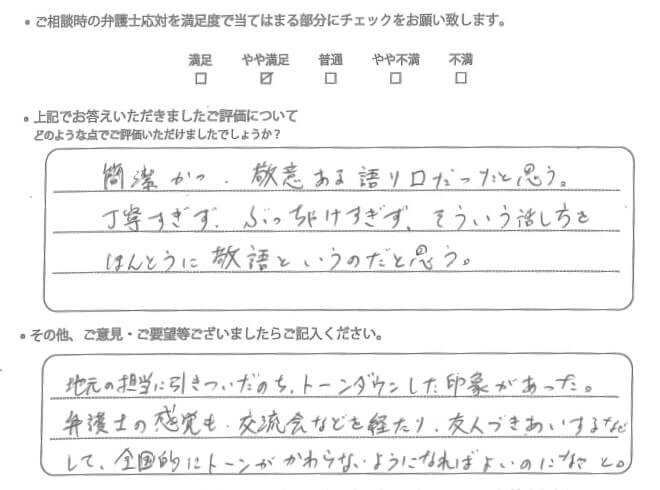 • ご相談時の弁護士応対を満足度で当てはまる部分にチェックをお願い致します。
満足 やや満足 普通 やや不満 不満
□ ☑ □ □ □
• 上記でお答えいただきましたご評価について
どのような点でご評価いただけましたでしょうか？
簡潔かつ、敬意ある語り口だったと思う。
丁寧すぎず、ぶっちゃけすぎず、そういう話し方を
ほんとうに敬語というのだと思う。
• その他、ご意見・ご要望等ございましたらご記入ください。
地元の担当に引きついだのち、トーンダウンした印象があった。
弁護士の感覚も、交流会などを経たり、友人づきあいするなど
して、全国的にトーンがかわらないようになればよいのになと。